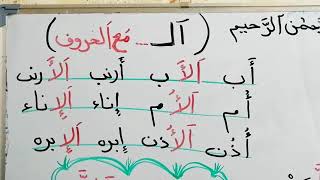 ـحمٰن اَلرَّحيم
( اَلـ .... مَع اَلحُروف )
أَب اَلأَب أرنب اَلأَرنب
أُم اَلأُم إناء اَلإناء
أُذن اَلأُذن إبره اَلإبره